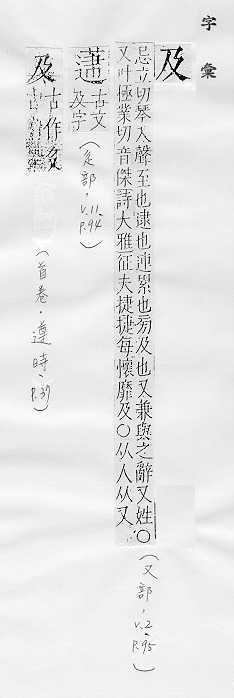 字彙
及
忌立切琴入聲至也逮也連累也旁及也又兼與之辭又姓〇
又叶極業切音傑詩大雅征夫捷捷每懷靡及〇从人从又
(又部，v.2，P.95)
古文
及字
(辵部，v.11，P.94)
及 古作
(首卷，遵時，P.39)